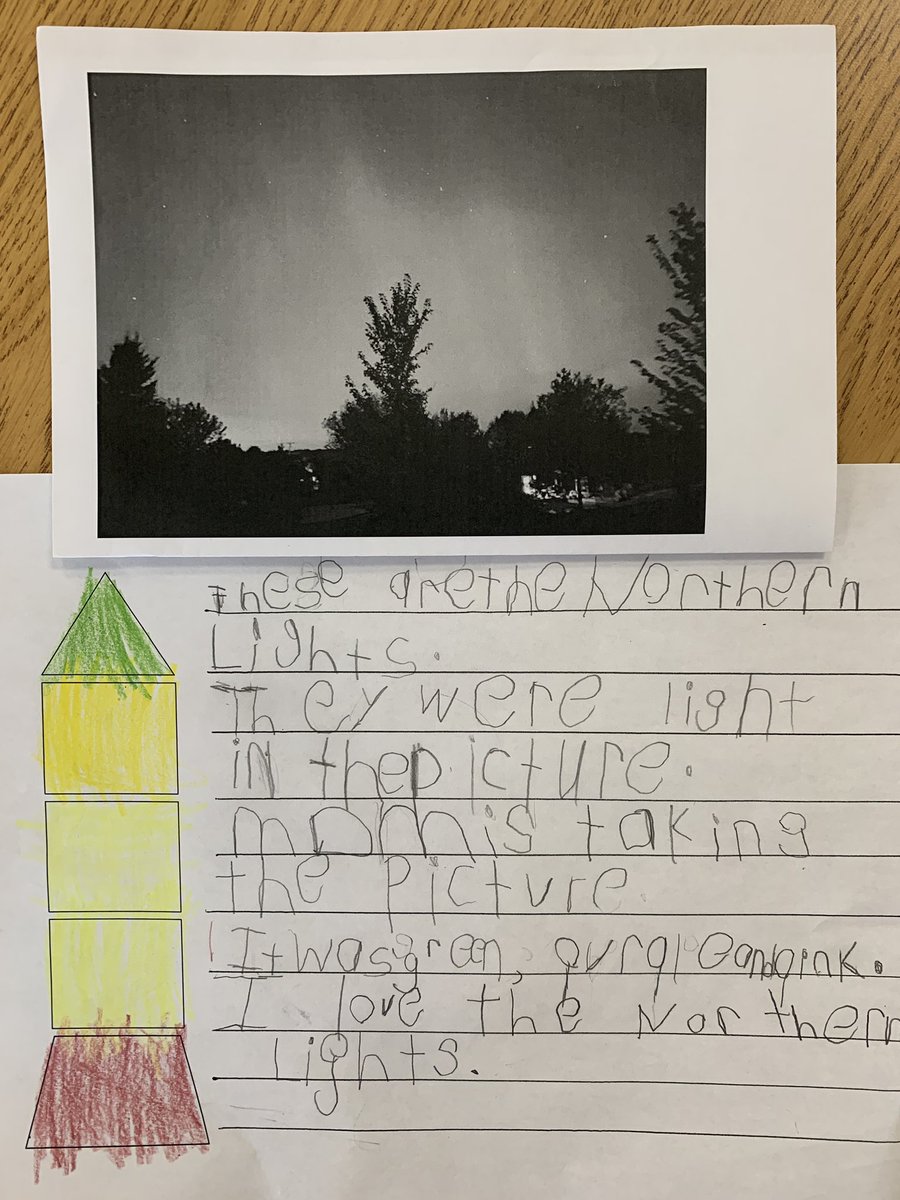 These are the Northern
Lights.
They were light
in the picture.
mom is taking
the picture.
It was green, qurqle and qink.
I love the Northern
Lights.